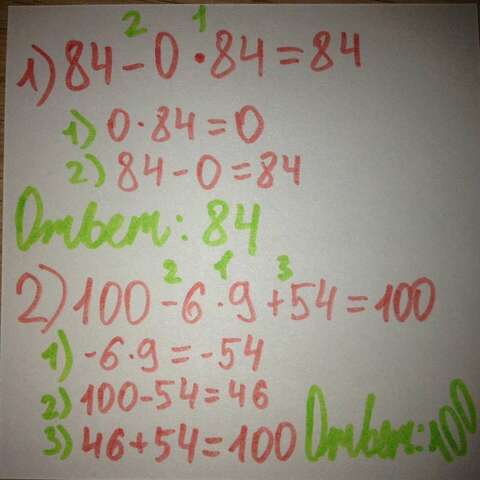 2 1
1) 84 - 0 · 84 = 84
1) 0 · 84 = 0
2) 84 - 0 = 84
Ответ: 84
2 1 3
2) 100 - 6 · 9 + 54 = 100
1) -6 · 9 = -54
2) 100 - 54 = 46
3) 46 + 54 = 100 Ответ: 100